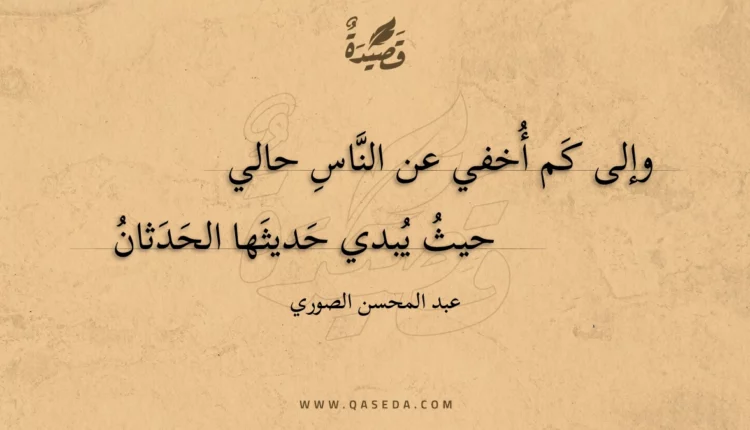 قَصِيدَةٌ
وإلى كَم أُخفي عن النَّاسِ حالي
حيثُ يُبدي حَديثَها الحَدَثانُ
عبد المحسن الصوري
WWW.QASEDA.COM